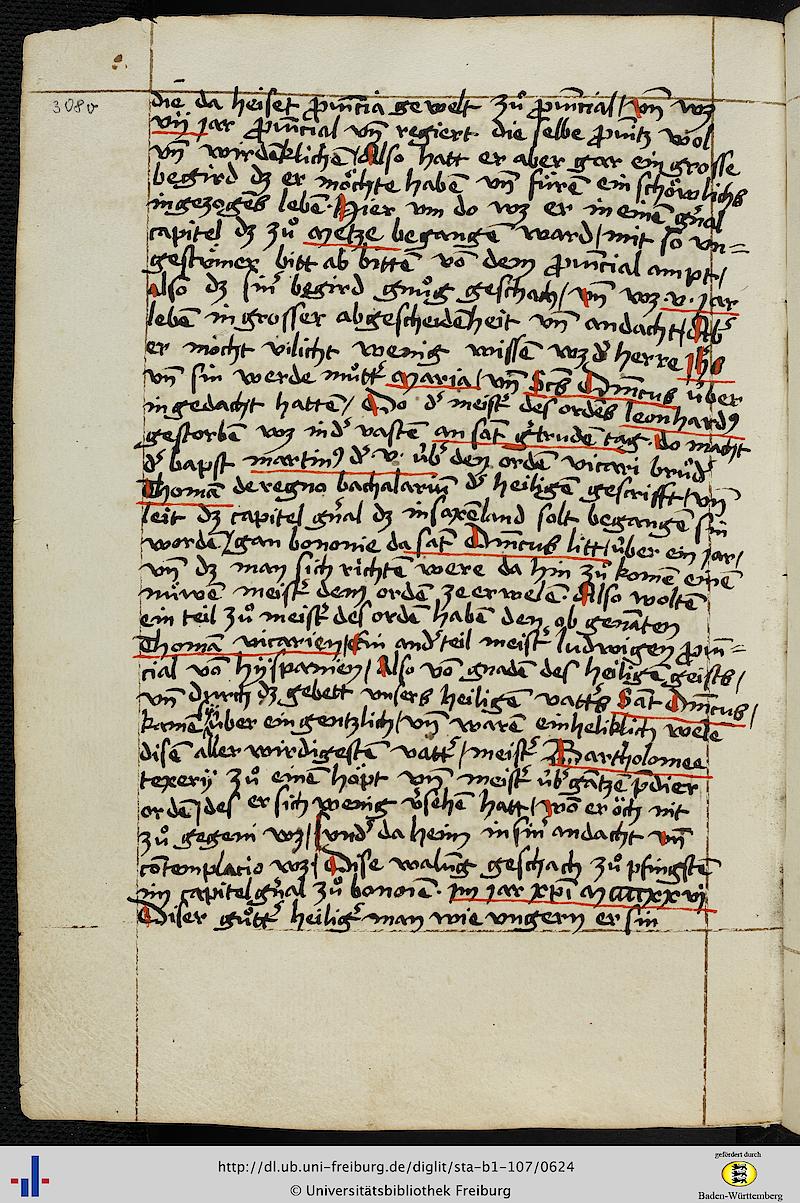 308v
die da heiset ꝓuincia gewelt zuͦ ꝓuincial / vn̄ wz
vij jar ꝓuincial vn̄ regiert die selbe ꝓuintz wol
vn̄ wirdenklichen / Also hatt er aber gar ein grosse
begird dz er moͤchte habē vn̄ fuͤren ein schoͤwlichs
ingezogēs lebē Hier vm do wz er in einē gn̄al
capitel dz zuͦ Metze begangē ward / mit so vn=
gestuͤmer bitt ab bittē vō dem ꝓuincial ampt /
also dz sinr begird gnuͦg geschach / vn̄ wz v. jar
lebē in grosser abgescheidēheit vn̄ andacht / Abr
er mocht vilicht wenig wissē wz dr herre jhs
vn̄ sin werde muͦttr Maria / vn̄ Scs Dm̄icus uͤber
in gedacht hattē / Do dr meistr des ordēs leonhardꝰ
gestorbē wz in dr vastē an sāt gertrudē tag. do macht
dr bapst martinꝰ dr v. uͤbr den orden vicari bruͦdr
Thomā de regno bachalariū dr heiligē geschrifft / vn̄
leit dz capitel gn̄al dz in saxenland solt begangē sin
wordē / gan bononie da sāt Dm̄icus litt / uͤber ein jar /
vn̄ dz man sich richtē were da hin zuͦ komē einē
nuͤwē meistr dem ordē ze erwelē Also woltē
ein teil zuͦ meistr des ordē habē den ob genantē
Thomā vicarien / Ein andr teil meistr ludwigē ꝓuin=
cial vō hijspanien / Also vō gnadē des heiligē geists /
vn̄ durch dz gebett vnsers heiligē vattrs Sāt Dm̄icus /
kamē sij uͤber ein gentzlich / vn̄ warē einheliklich wele
disē aller wirdigestē vattr / meistr Bartholomee
texerij zuͦ einē hoͤpt vn̄ meistr uͤbr gātzē p̄dier
ordē / des er sich wenig vrsehē hatt / wō er oͤch nit
zuͦ gegeni wz / sundr da heim in sinr andacht vn̄
cōtemplacio wz / Dise walūg geschach zuͦ pfingstē
im capitel gn̄al zuͦ bononiē. Im jar xpi M ccccxxvj
Diser guͦttr heiligr man wie vngern er sin
http://dl.ub.uni-freiburg.de/diglit/sta-b1-107/0624
© Universitätsbibliothek Freiburg
gefördert durch
Baden-Württemberg